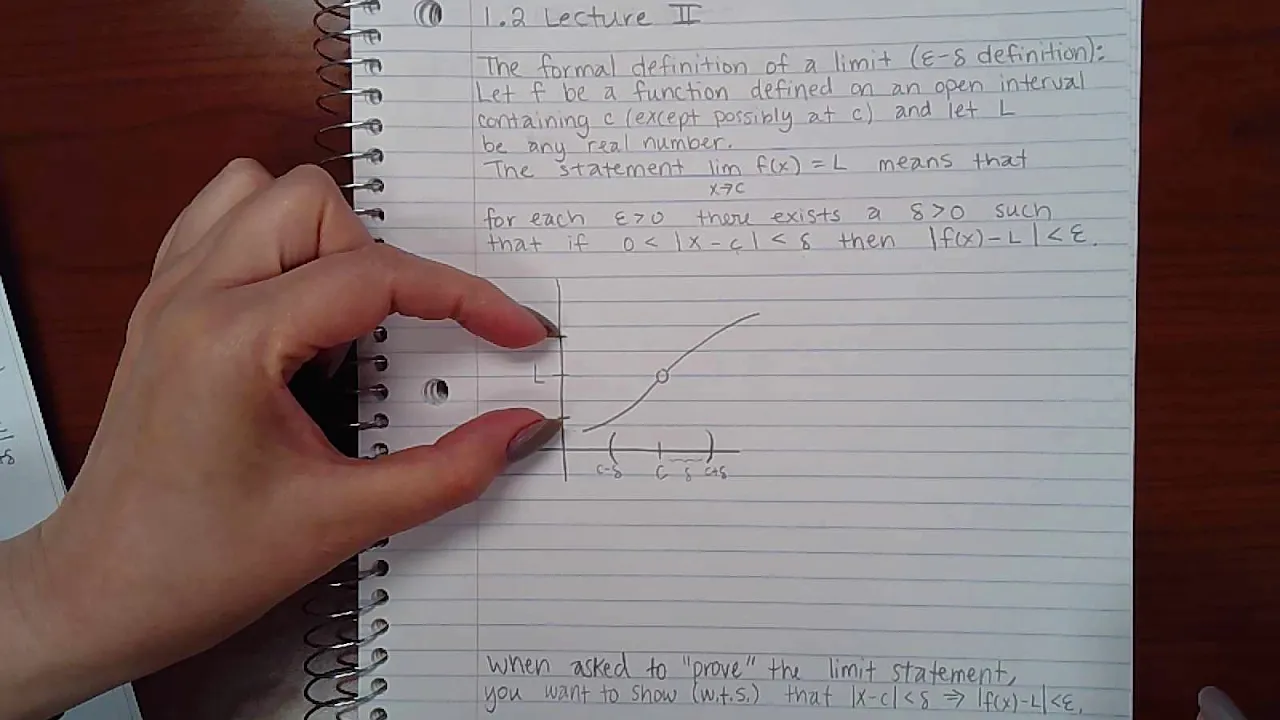 1.2 Lecture II
The formal definition of a limit (ε-δ definition):
Let f be a function defined on an open interval
containing c (except possibly at c) and let L
be any real number.
The statement lim f(x) = L means that
x→c
for each ε>0 there exists a δ>0 such
that if 0 < |x - c| < δ then |f(x) - L| < ε.
L
c-δ c δ c+δ
When asked to "prove" the limit statement,
you want to show (w.t.s.) that |x-c| < δ ⇒ |f(x)-L| < ε.